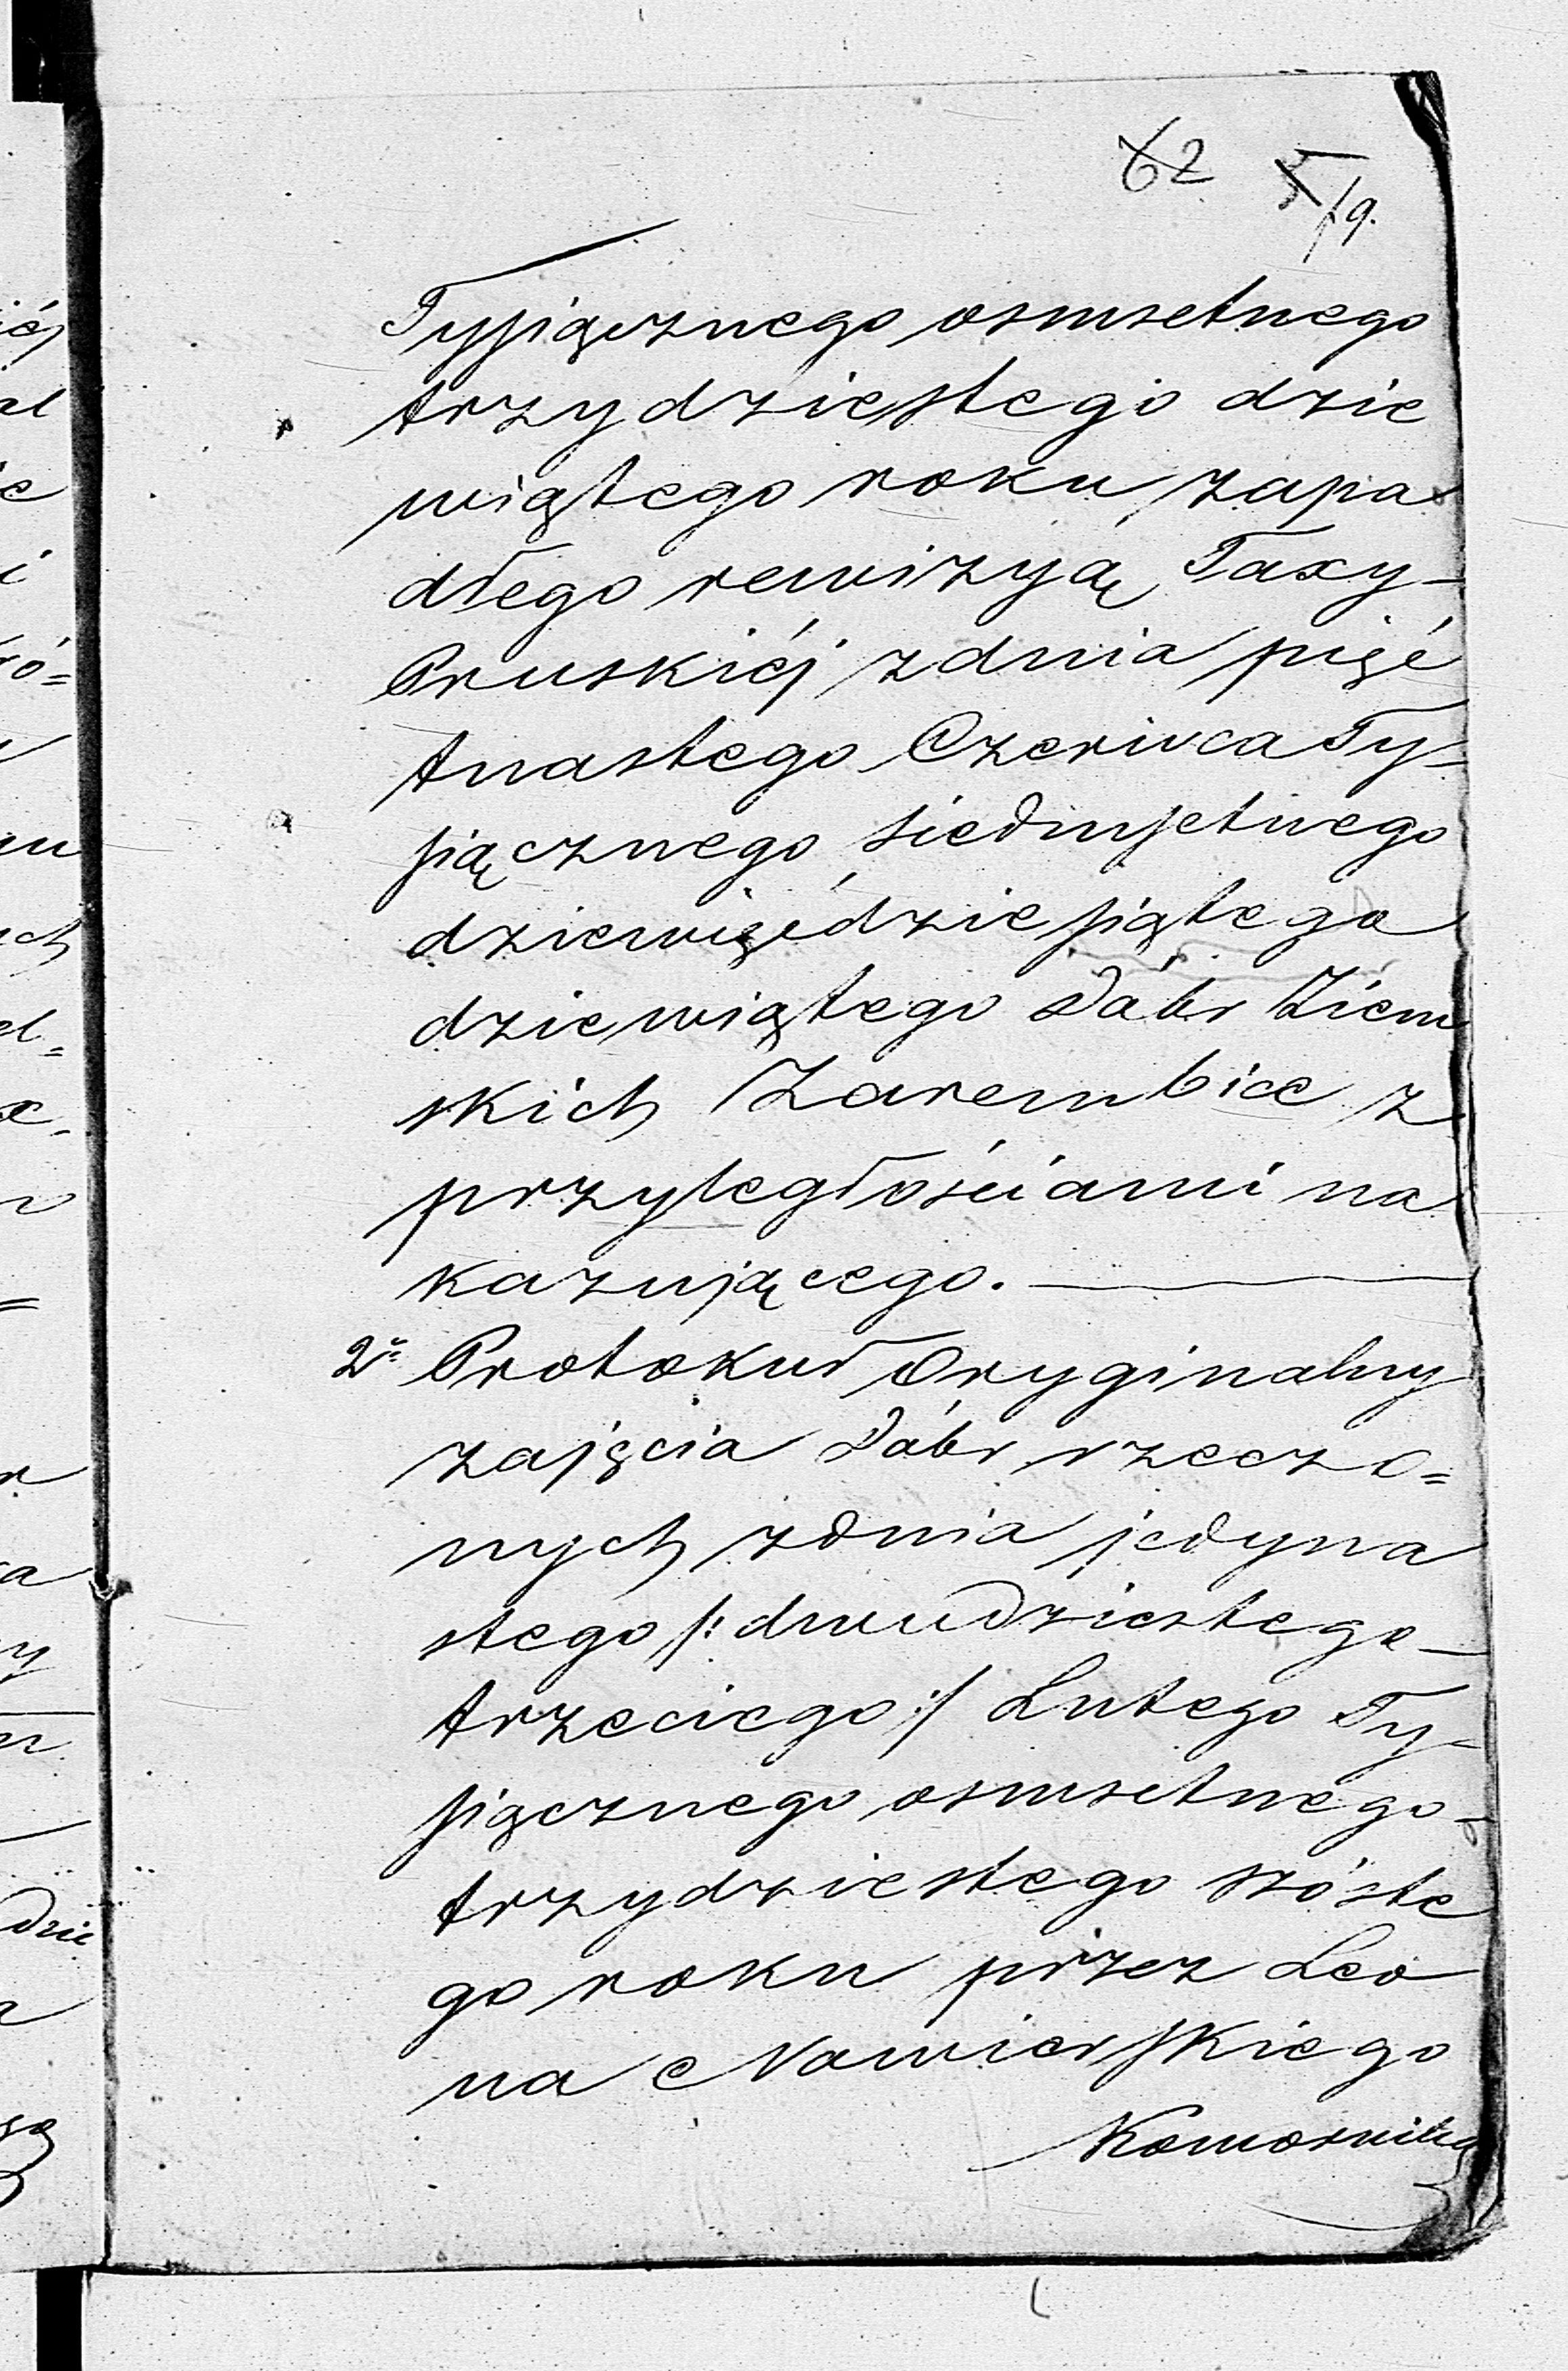 62 5/19.
Tysiącznego osmsetnego
trzydziestego dzie
wiątego roku zapa
dłego rewizyą Taxy-
Pruskiéj z dnia pięć
tnastego Czerwca Ty=
siącznego siedmsetnego
dziewięćdziesiątego
dziewiątego Dóbr Ziem
skich Zarembice z
przyległościami na
kazującego.
2o Protokuł Oryginalny
zajęcia Dóbr rzeczo=
nych z dnia jedyna
stego /: dwudziestego-
trzeciego :/ Lutego Ty-
siącznego osmsetnego-
trzydziestego szóste
go roku przez Leo
na Nawierskiego
Komornika